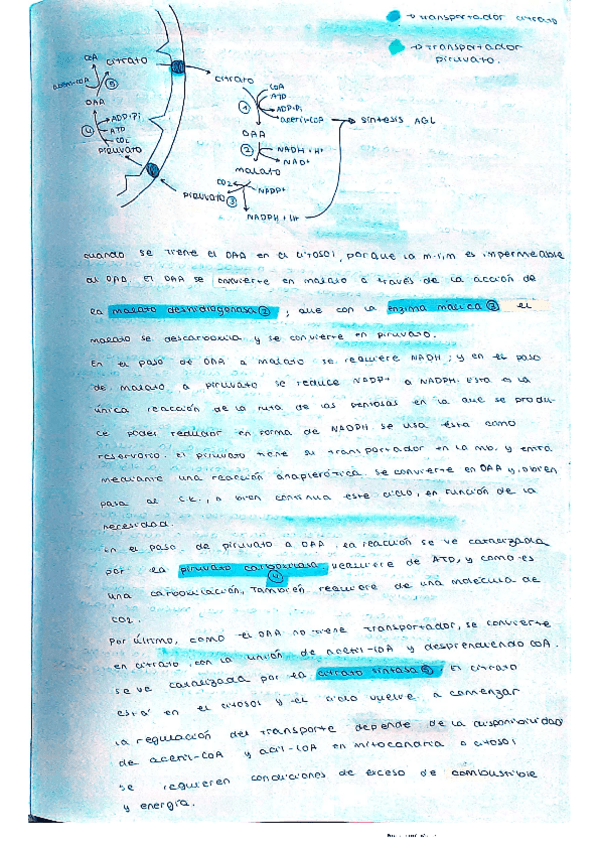 → transportador citrato
→ transportador piruvato.
CoA
citrato
acetil-CoA
5
OAA
ADP+Pi
4
ATP
CO2
piruvato
citrato
CoA
ATP
1
ADP+Pi
acetil-CoA → síntesis AGL
OAA
2
NADH + H+
NAD+
malato
CO2
NADP+
piruvato 3
NADPH + H+
cuando se tiene el OAA en el citosol, porque la m.i,m es impermeable
al OAA. El OAA se convierte en malato a través de la acción de
la malato deshidrogenasa 2 ; que con la enzima málica 3 el
malato se descarboxila y se convierte en piruvato.
En el paso de OAA a malato se requiere NADH ; y en el paso
de malato a piruvato se reduce NADP+ a NADPH. Esta es la
única reacción de la ruta de las pentosas en la que se produ-
ce poder reductor en forma de NADPH se usa esta como
reservorio. El piruvato tiene su transportador en la mb. y entra
mediante una reacción anaplerótica. Se convierte en OAA y, o bien
pasa al C.K., o bien continua este ciclo, en función de la
necesidad.
En el paso de piruvato a OAA la reacción se ve catalizada
por la piruvato carboxilasa requiere de ATP, y como es
4
una carboxilación, también requiere de una molécula de
CO2.
Por último, como el OAA no tiene transportador, se convierte
en citrato, con la unión de acetil-CoA y desprendiendo CoA.
se ve catalizada por la citrato sintasa 5 El citrato
está en el citosol y el ciclo vuelve a comenzar
la regulación del transporte depende de la disponibilidad
de acetil-CoA y acil-CoA en mitocondria o citosol
se requieren condiciones de exceso de combustible
y energía.